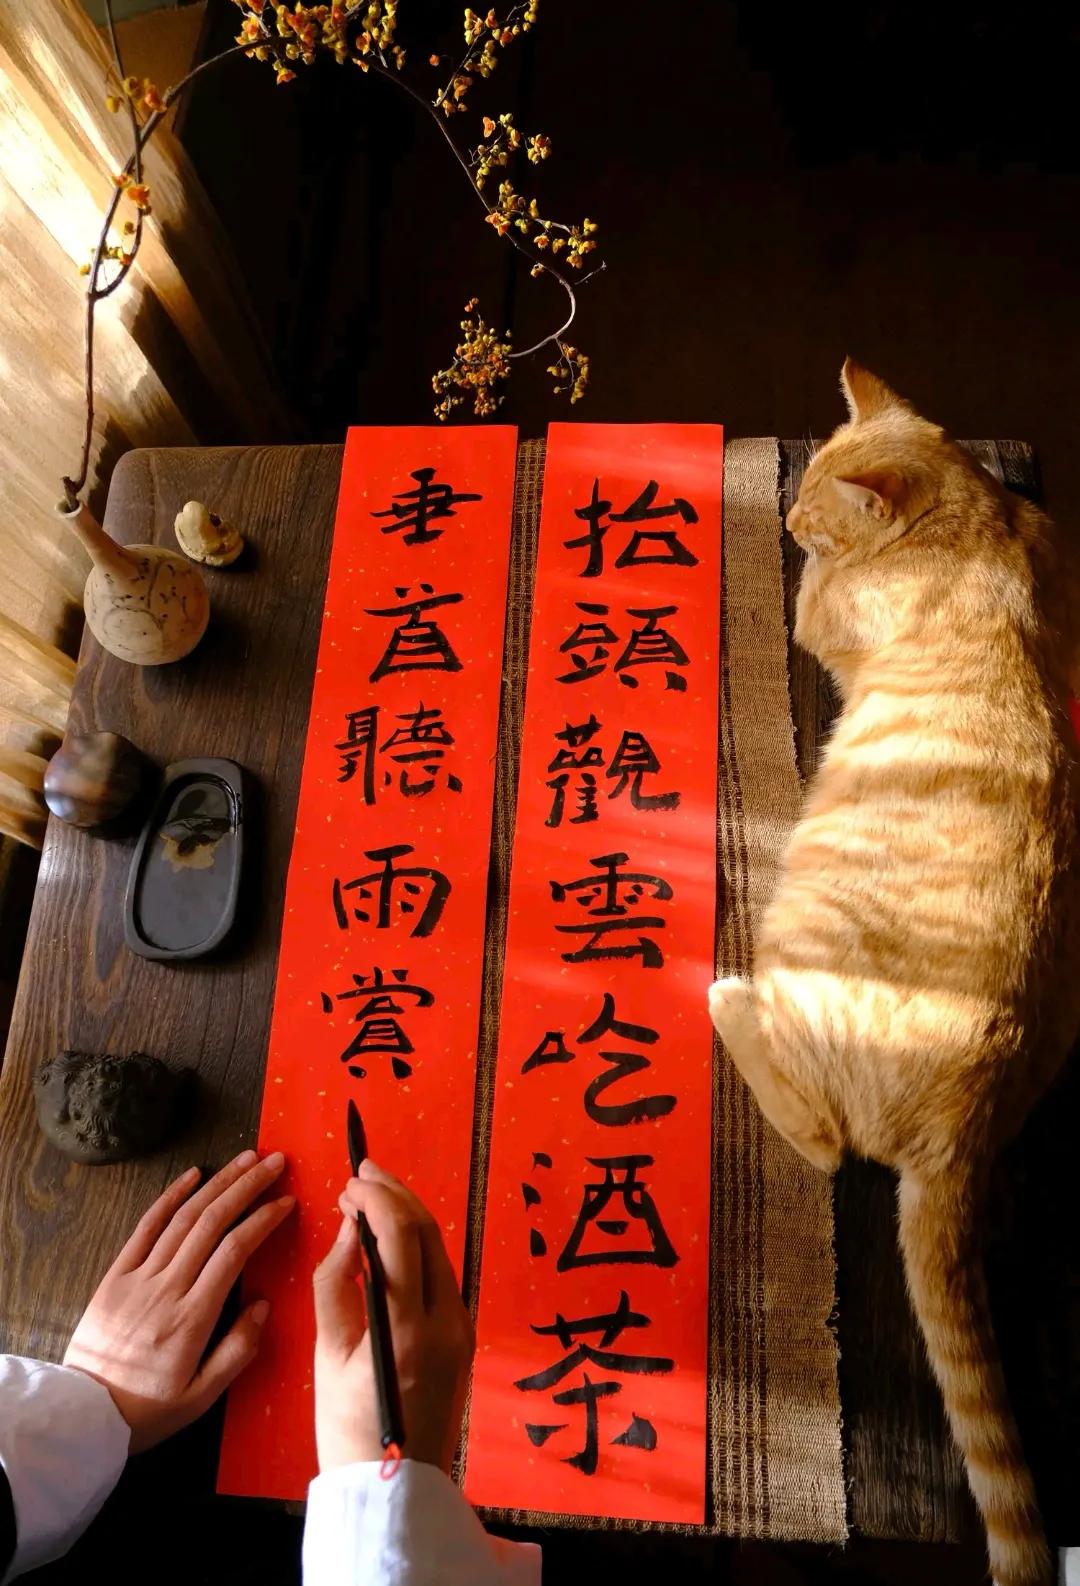 抬頭觀雲吃酒茶
垂首聽雨賞